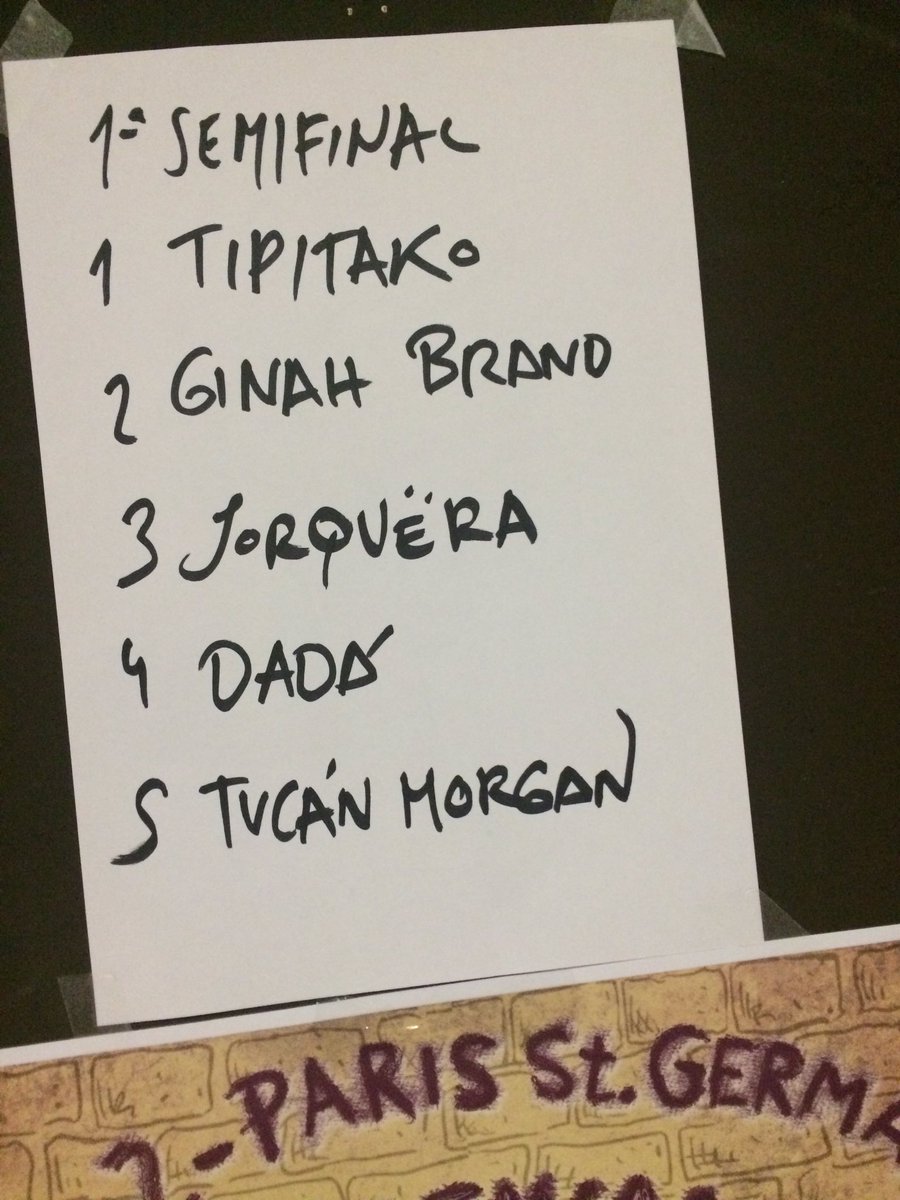 1ª SEMIFINAL
1 TIPITAKO
2 GINAH BRAND
3 JORQUËRA
4 DADÁ
5 TUCÁN MORGAN
PARIS St. GERMA